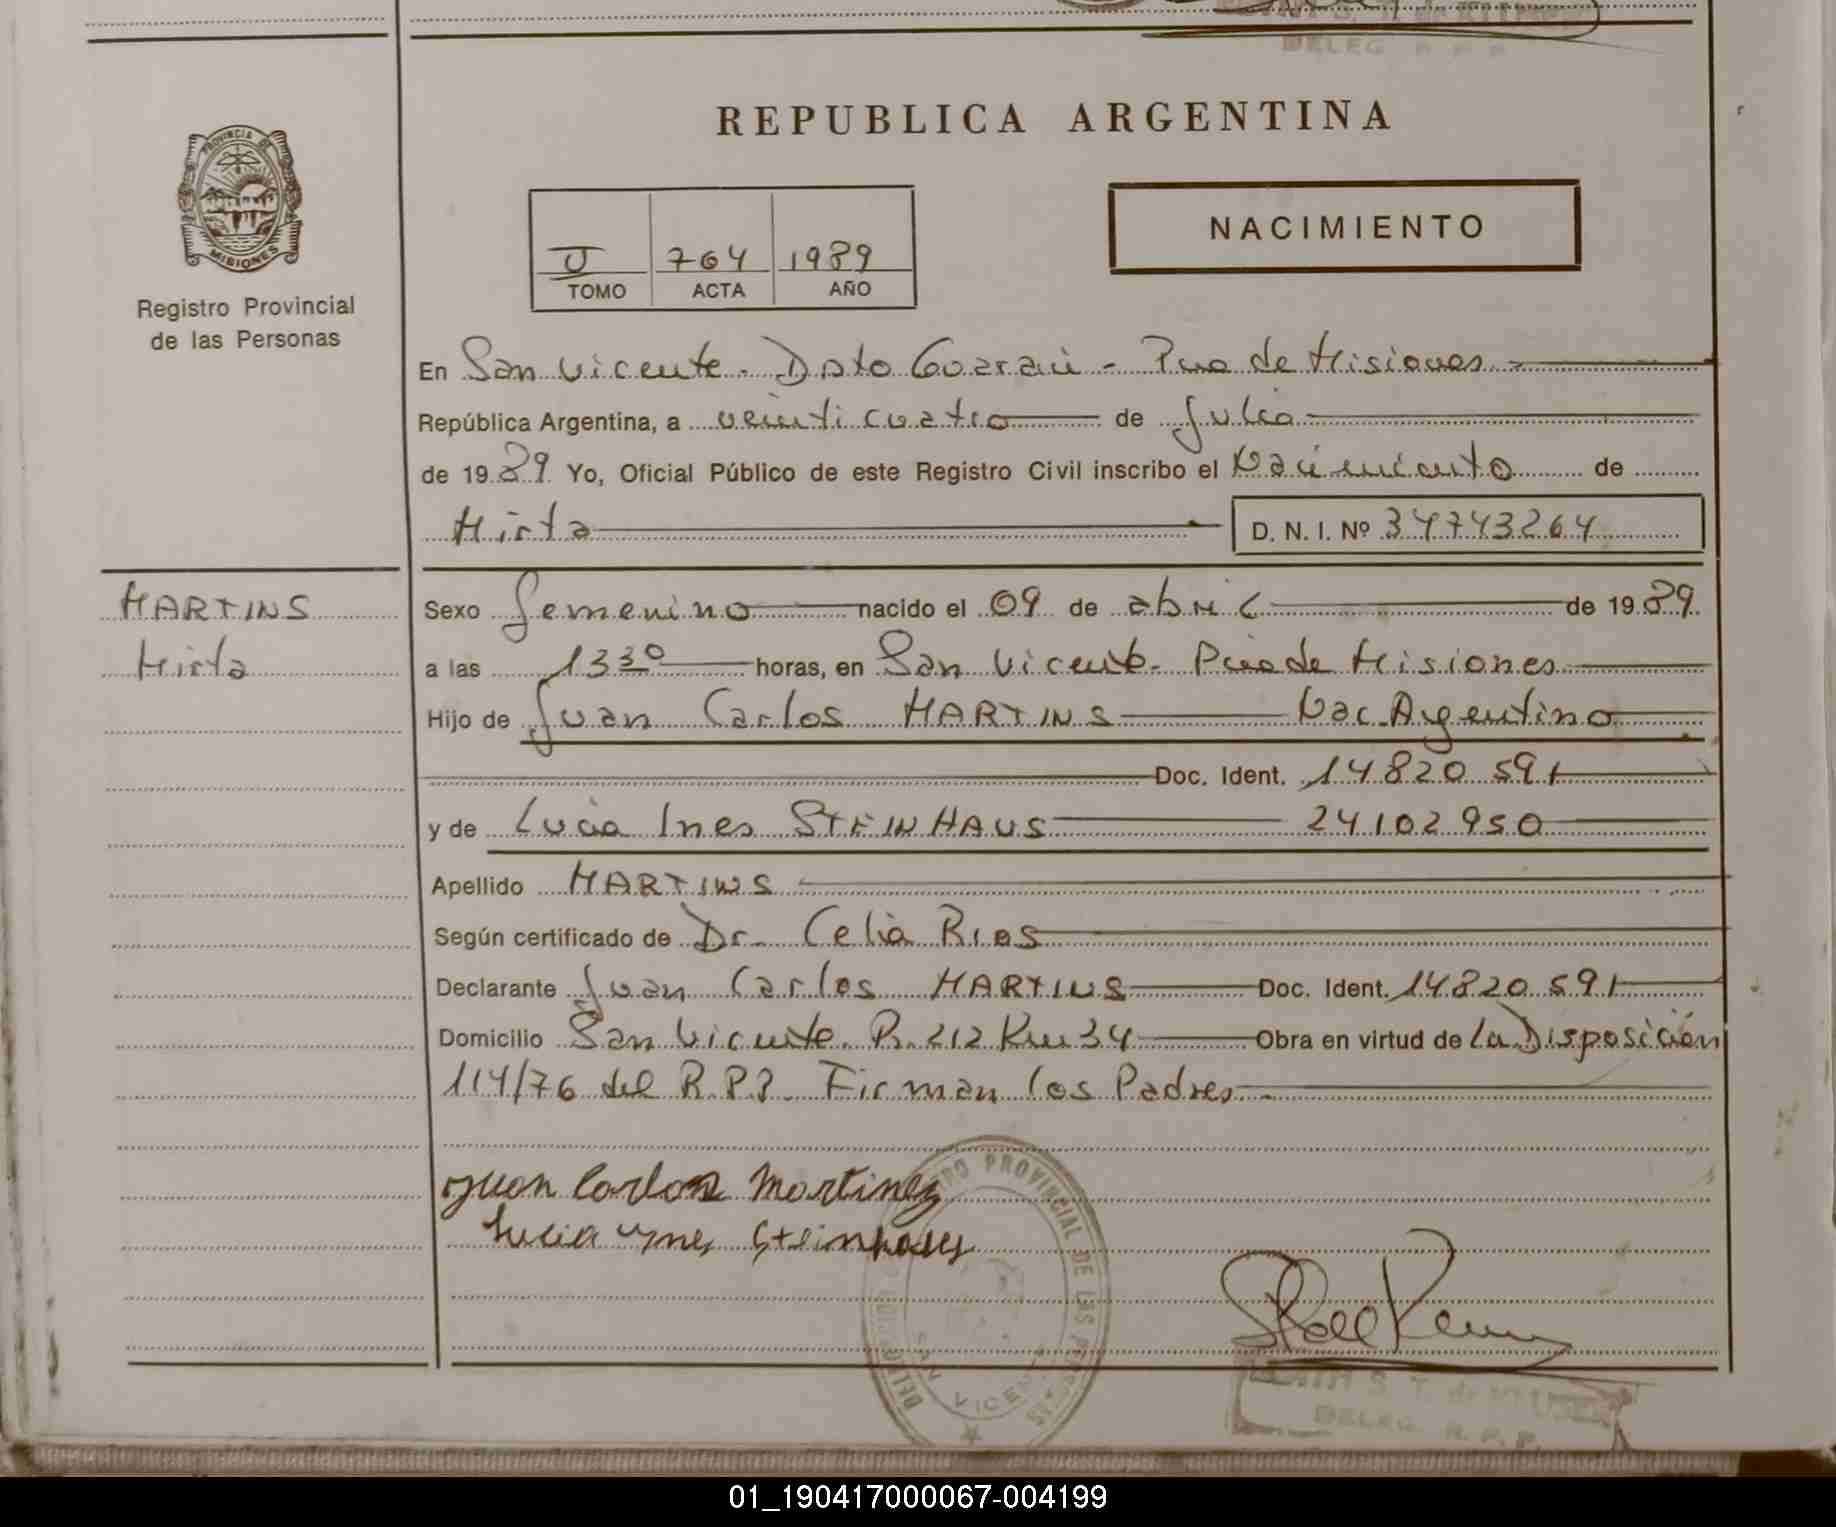 REPUBLICA ARGENTINA
PROVINCIA DE
MISIONES
Registro Provincial
de las Personas
NACIMIENTO
764 1989
TOMO ACTA AÑO
En San Vicente - Dpto Guarani - Pcia de Misiones -
República Argentina, a veinticuatro de Julio
de 1989 Yo, Oficial Público de este Registro Civil inscribo el Nacimiento de
Mirta D. N. I. Nº 34743264
MARTINS
Mirta
Sexo femenino nacido el 09 de abril de 1989
a las 13 30 horas, en San Vicente - Pcia de Misiones
Hijo de Juan Carlos MARTINS Nac. Argentino
Doc. Ident. 14820 591
y de Lucia Ines STEINHAUS 24102950
Apellido MARTINS
Según certificado de Dr. Celia Rios
Declarante Juan Carlos MARTINS Doc. Ident. 14820 591
Domicilio San Vicente R. 212 Km 34 Obra en virtud de la Disposición
114/76 del R.P.P. Firman los Padres -
Juan Carlos Martinez
Lucia Ynes Steinhaus
REGISTRO PROVINCIAL DE LAS PERSONAS
SAN VICENTE
S. T. de
DELEG. R. P. P.
01_190417000067-004199